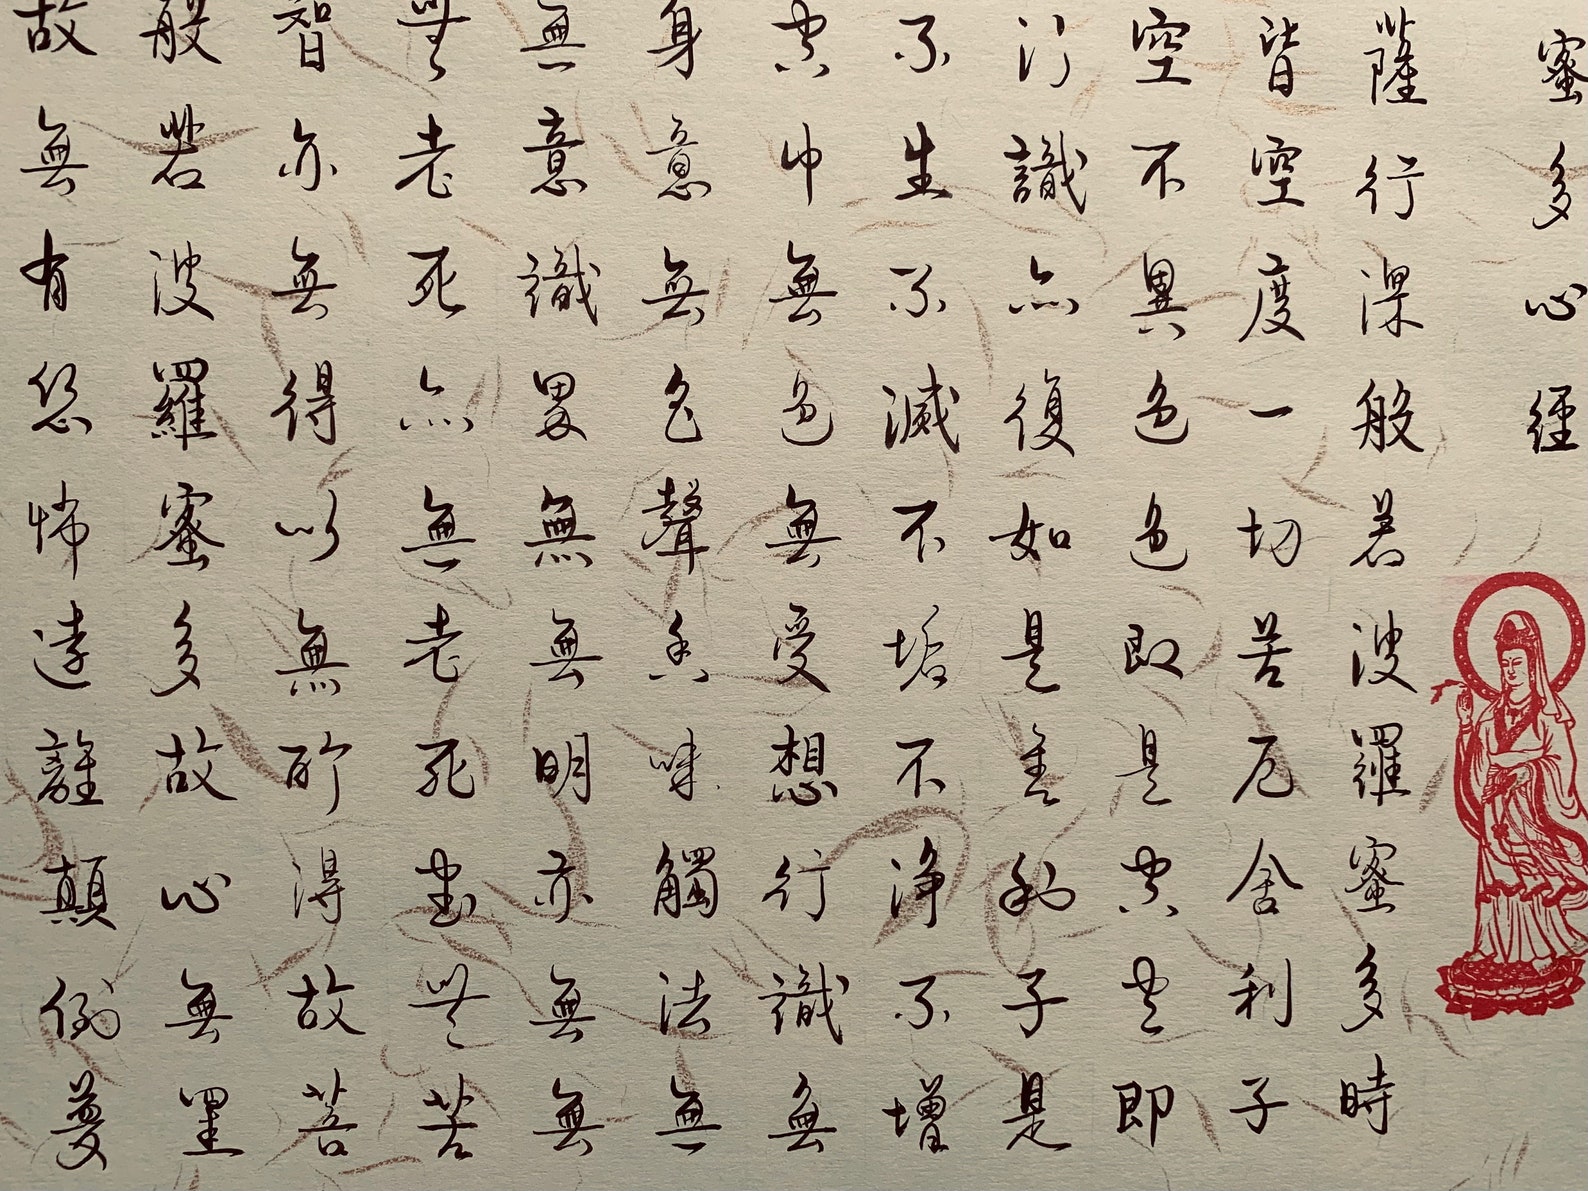 蜜多心經
薩行深般若波羅蜜多時
皆空度一切苦厄舍利子
空不異色色即是空空即
行識亦復如是舍利子是
不生不滅不垢不淨不增
空中無色無受想行識無
身意無色聲香味觸法無
無意識界無無明亦無無
無老死亦無老死盡無苦
智亦無得以無所得故菩
般若波羅蜜多故心無罣
故無有恐怖遠離顛倒夢